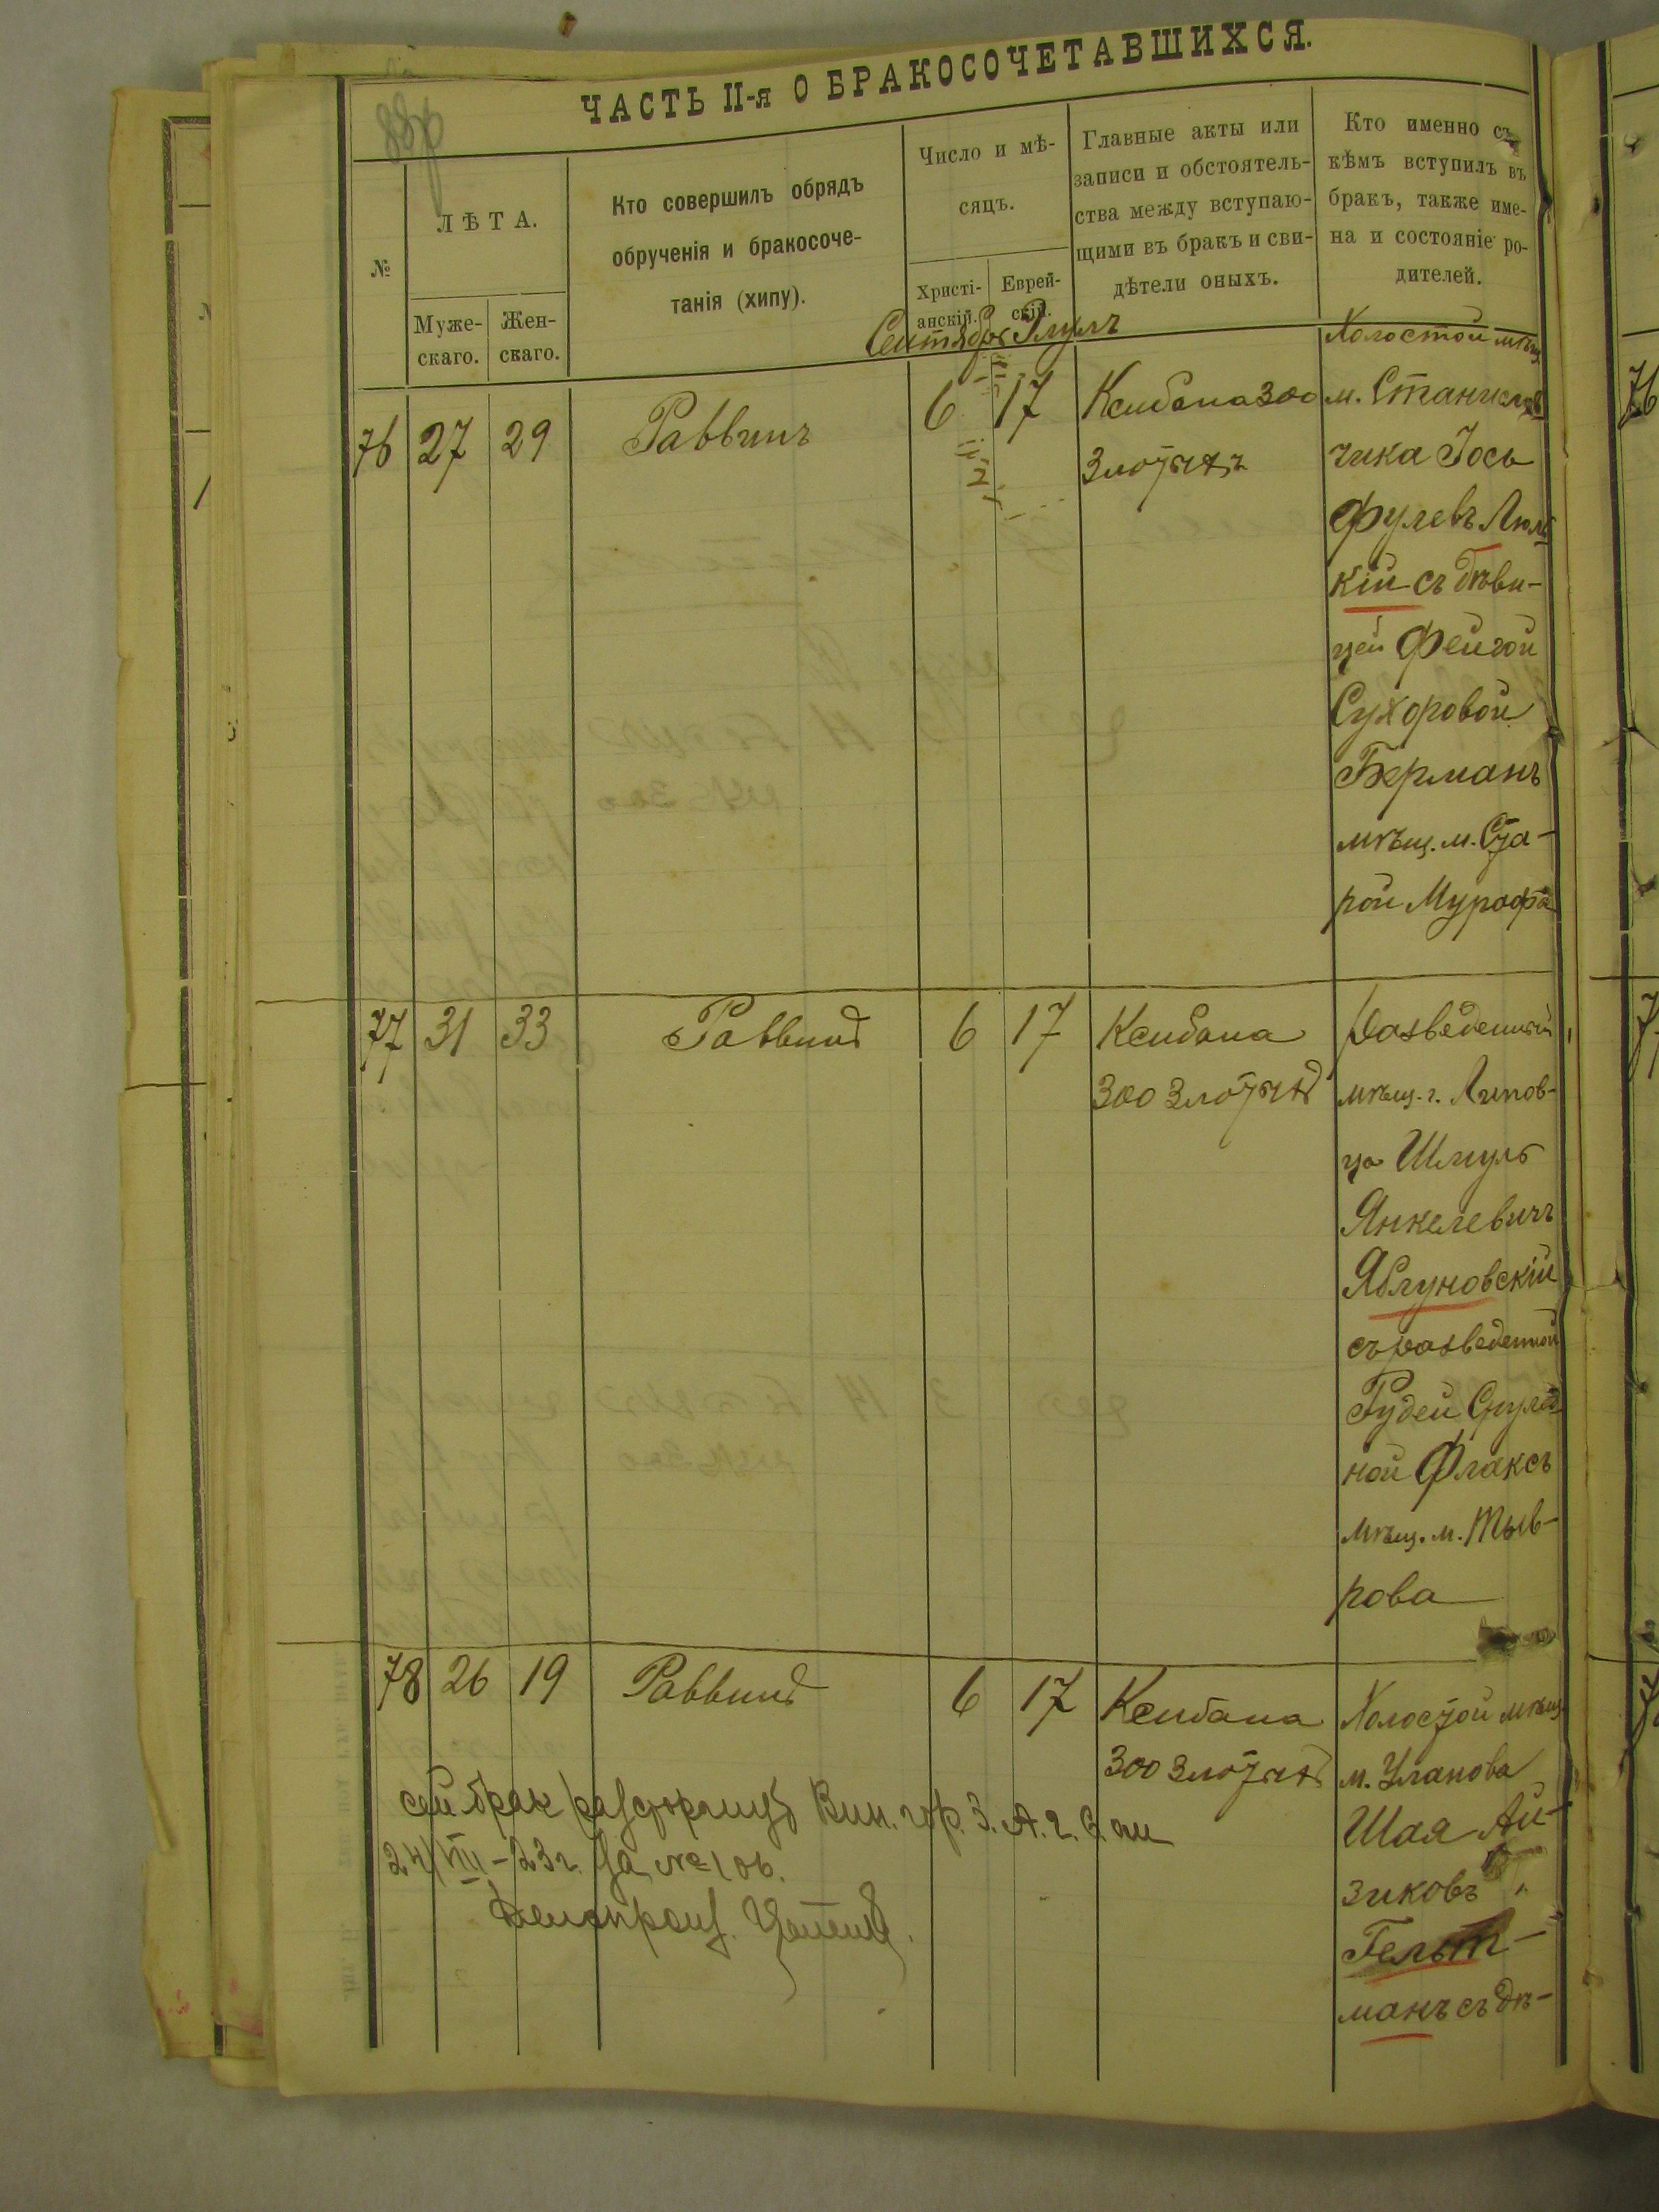 ЧАСТЬ II-я О БРАКОСОЧЕТАВШИХСЯ.
№
ЛѢТА.
Муже-
скаго.
Жен-
скаго.
Кто совершилъ обрядъ
обрученія и бракосоче-
танія (хипу).
Число и мѣ-
сяцъ.
Христі-
анскій.
Еврей-
скій.
Главные акты или
записи и обстоятель-
ства между вступаю-
щими въ бракъ и сви-
дѣтели оныхъ.
Кто именно съ
кѣмъ вступилъ въ
бракъ, также име-
на и состояніе ро-
дителей.
Сентябрь Элулъ
76 27 29 Раввинъ 6 17
Ксибана 300
злотыхъ
Холостой мѣщ.
м. Станислав
чика Іось
Фулевъ Люль
кій съ дѣви-
цей Фейгой
Сухоровой
Берманъ
мѣщ. м. Ста-
рой Мурафа
77 31 33 Раввинъ 6 17
Ксибана
300 злотыхъ
Разведенный
мѣщ. г. Липов-
ца Шмуль
Янкелевичъ
Яблуновскій
съ разведенной
Рудей Сруле
ной Флаксъ
мѣщ. м. Тыв-
рова
78 26 19 Раввинъ 6 17
Ксибана
300 злотыхъ
Холостой мѣщ.
м. Уланова
Шая Ай-
зиковъ
Гельт-
манъ съ дѣ-
сей брак расторгнут Вин. гор. З. А. г. С.
24/VIII-23 г. за № 106.
Делопроиз.